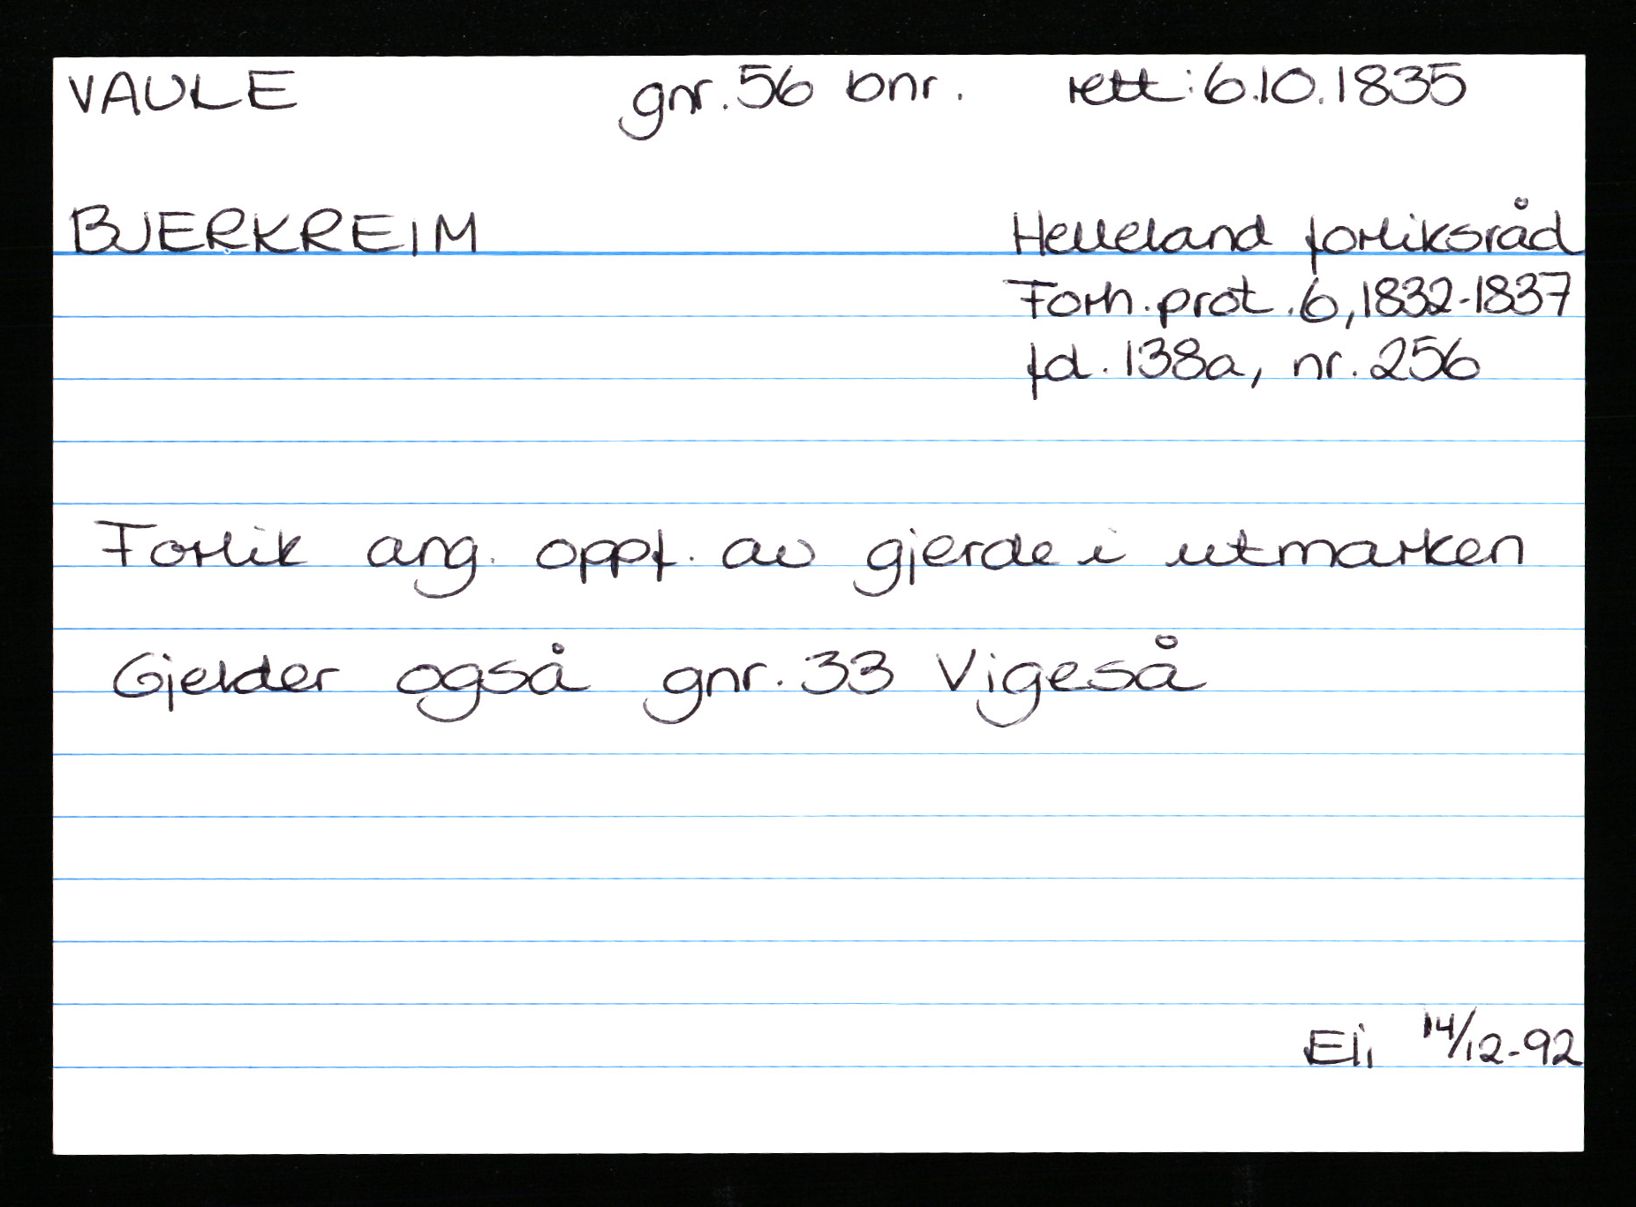 VAULE gnr. 56 bnr. rett: 6.10.1835
BJERKREIM Helleland forliksråd
Forh. prot. 6, 1832-1837
fd. 138a, nr. 256
Forlik ang. oppf. av gjerde i utmarken
Gjelder også gnr. 33 Vigeså
Eli, 14/12-92